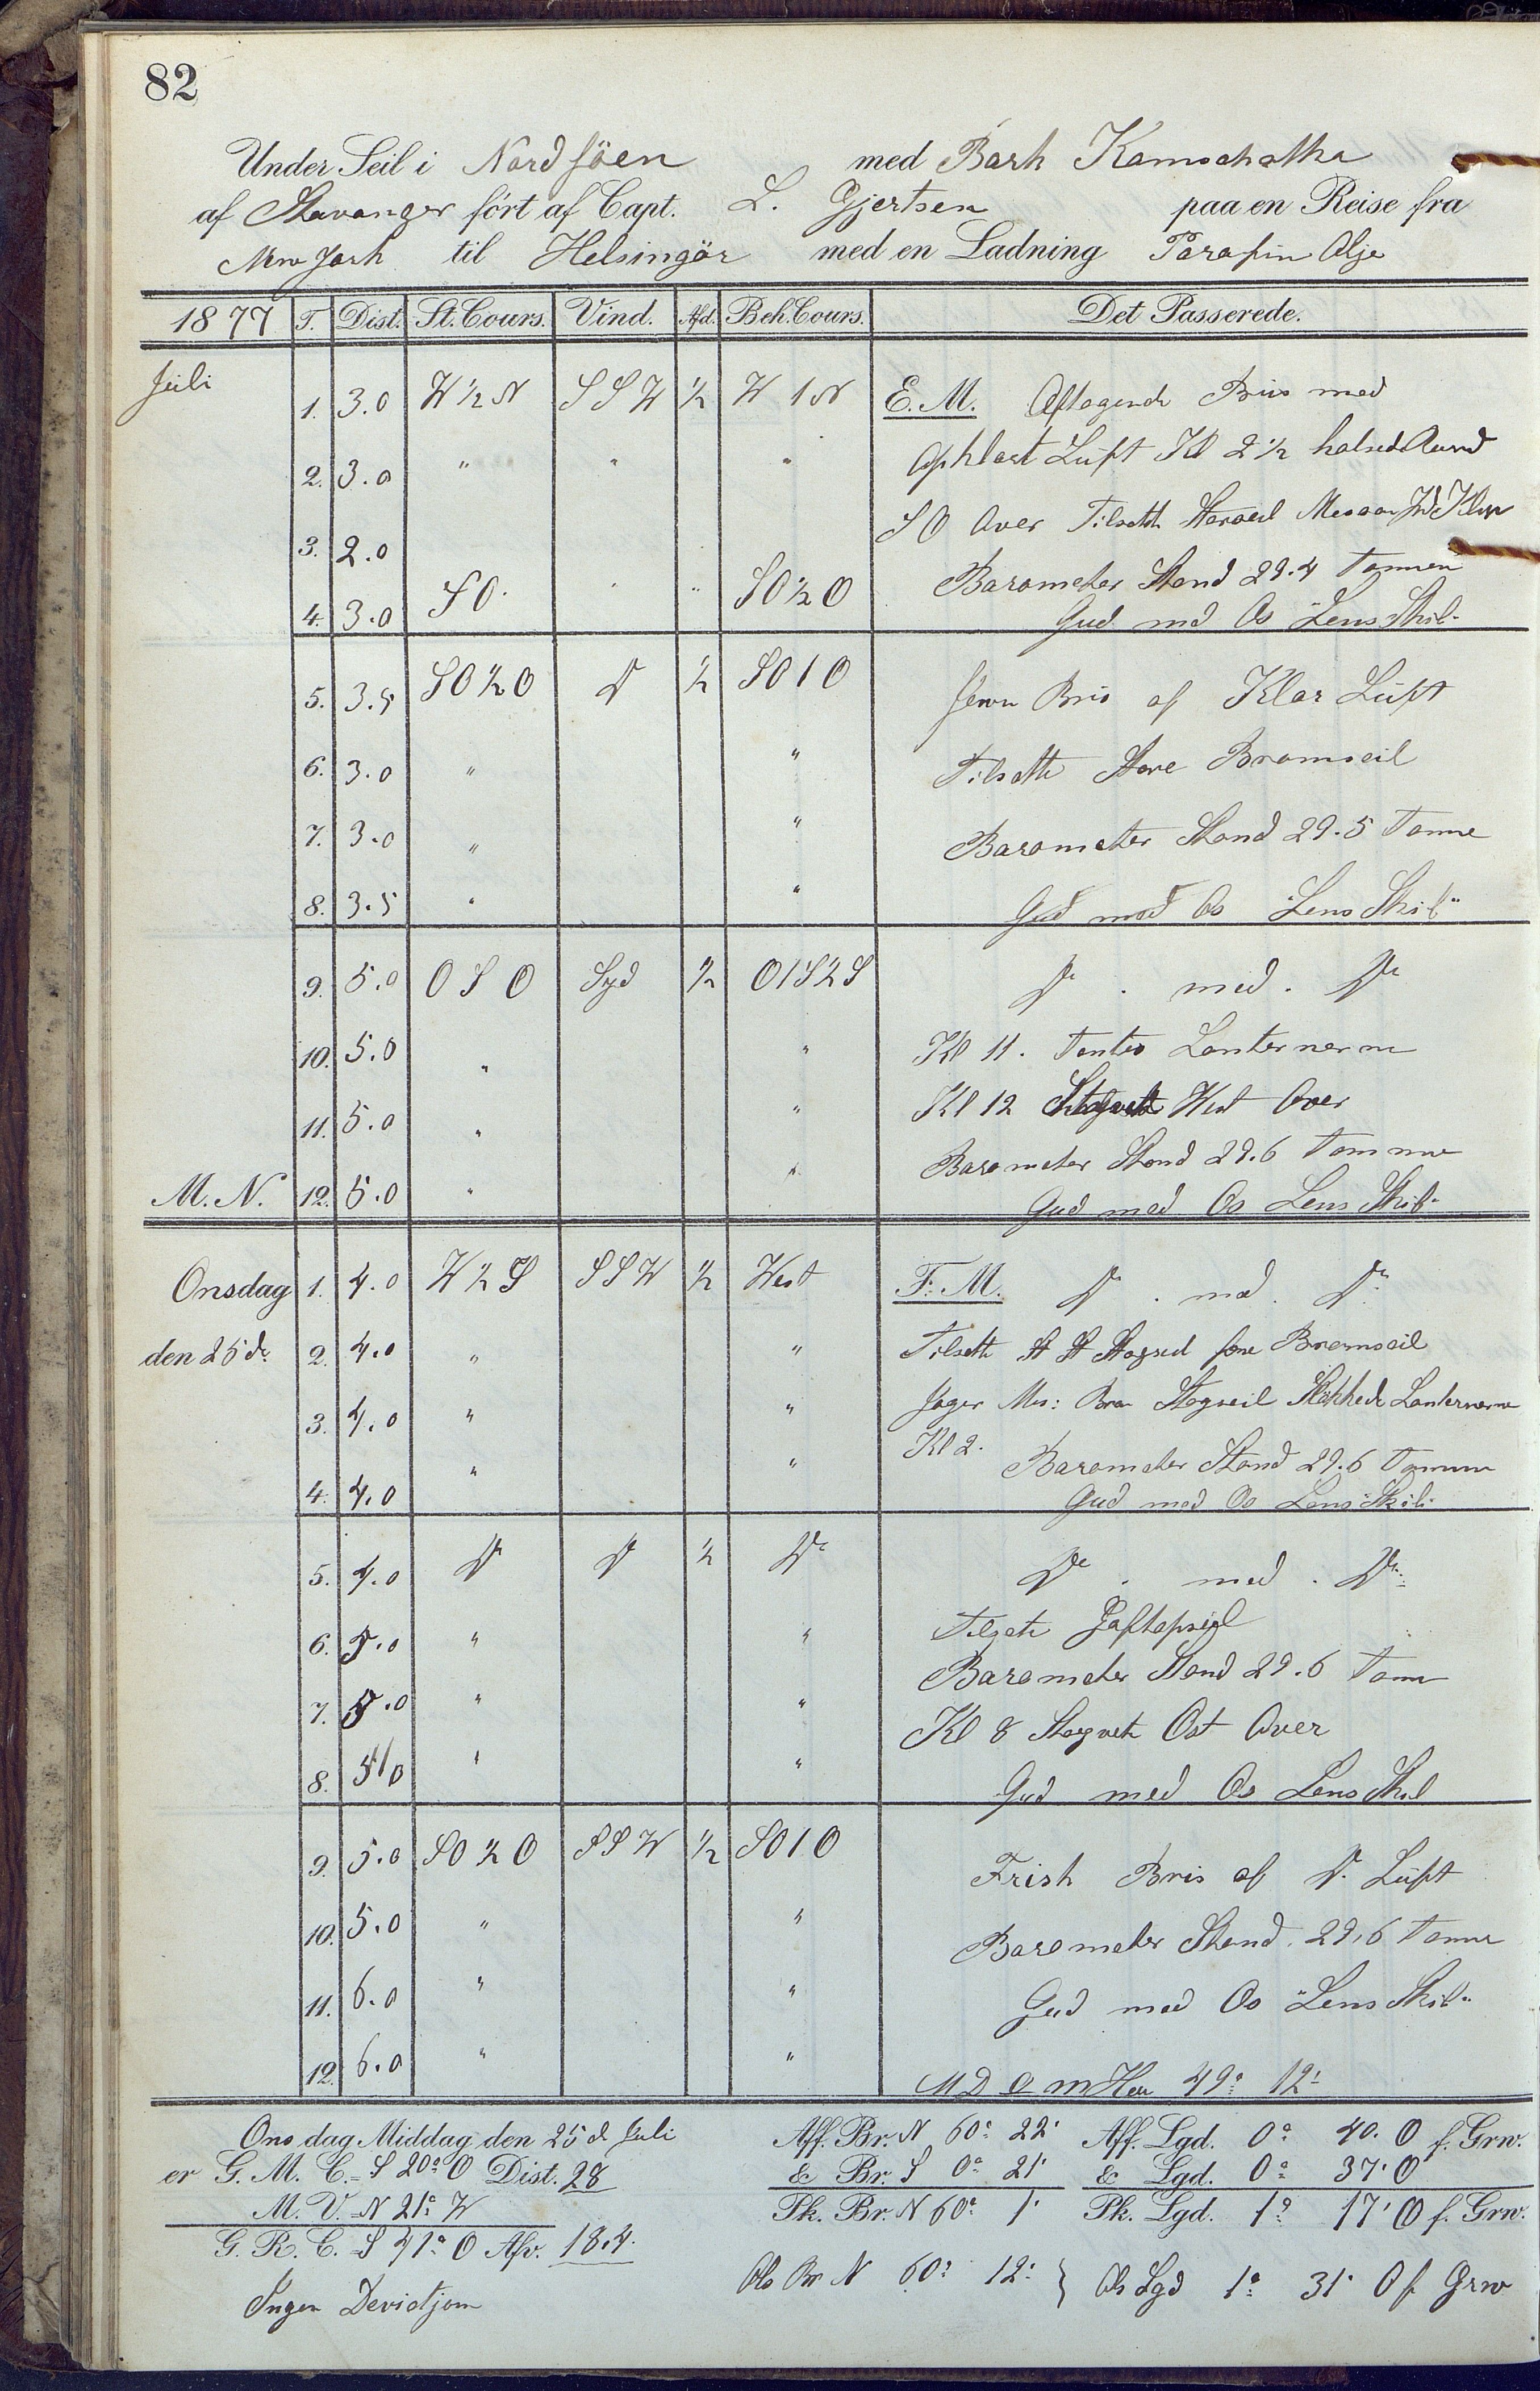 82
Under Seil i Nordsöen med Bark Kamschatka
af Stavanger ført af Capt. L. Gjertsen paa en Reise fra
New York til Helsingör med en Ladning Parafin Olje
1877 T. Dist. St. Cours. Vind. Afd. Beh. Cours. Det Passerede.
Juli
1. 3.0 W ½ N SSW ½ W 1 N E. M. Aftagende Bris med
2. 3.0 " " " Opklart Luft Kl 2 ½ halsede Rund
3. 2.0 SO Over Tilsatte Storseil Mesan
4. 3.0 SO. " " SO ½ O Barometer Stand 29.4 Tommer
Gud med Os Lens Skib
5. 3.5 SO ½ O Do ½ SO 1 O Jevn Bris af Klar Luft
6. 3.0 " " Tilsatte Store Bramseil
7. 3.0 " " Barometer Stand 29.5 Tomme
8. 3.5 " " Gud med Os Lens Skib"
9. 5.0 OSO Syd ½ O 1 S ½ S Do . med . Do
10. 5.0 " " Kl 11. Tentes Lanternerne
11. 5.0 " " Kl 12 Stagvent West Over
Barometer Stand 29.6 Tomme
M. N. 12. 5.0 " " Gud med Os Lens Skib
Onsdag 1. 4.0 W ½ S SSW ½ West F. M. Do . med . Do
den 25 de 2. 4.0 " " Tilsatte St St Stagseil fore Bramseil
3. 4.0 " " Jager Mes: Bram Stagseil Slukkede Lanternerne
Kl 2.
4. 4.0 " " Barometer Stand 29.6 Tomme
Gud med Os Lens Skib
5. 4.0 Do Do ½ Do Do . med . Do
6. 5.0 " " Tilsatte Gaftopseil
7. 5.0 " " Barometer Stand 29.6 Tomm
Kl 8 Stagvent Ost Over
8. 5.0 " " Gud med Os Lens Skib
9. 5.0 SO ½ O SSW ½ SO 1 O Frisk Bris af Do Luft
10. 5.0 " " Barometer Stand 29.6 Tomme
11. 6.0 " " Gud med Os "Lens Skib"
12. 6.0 " " 49° 12'
Onsdag Middag den 25 d Juli Aff. Br. N 60° 22' Aff. Lgd. 0° 40' O f. Grw.
er G. M. C. = S 20° O Dist. 28 & Br. S 0° 21' & Lgd. 0° 37' O
M. V. = N 21° W Pk. Br. N 60° 1' Pk. Lgd. 1° 17' O f. Grw.
G. R. C. = S 41° O Afv. 18.4.
Obs Br N 60° 12' } Obs Lgd 1° 31' O f Grw
Ingen Deviatjom